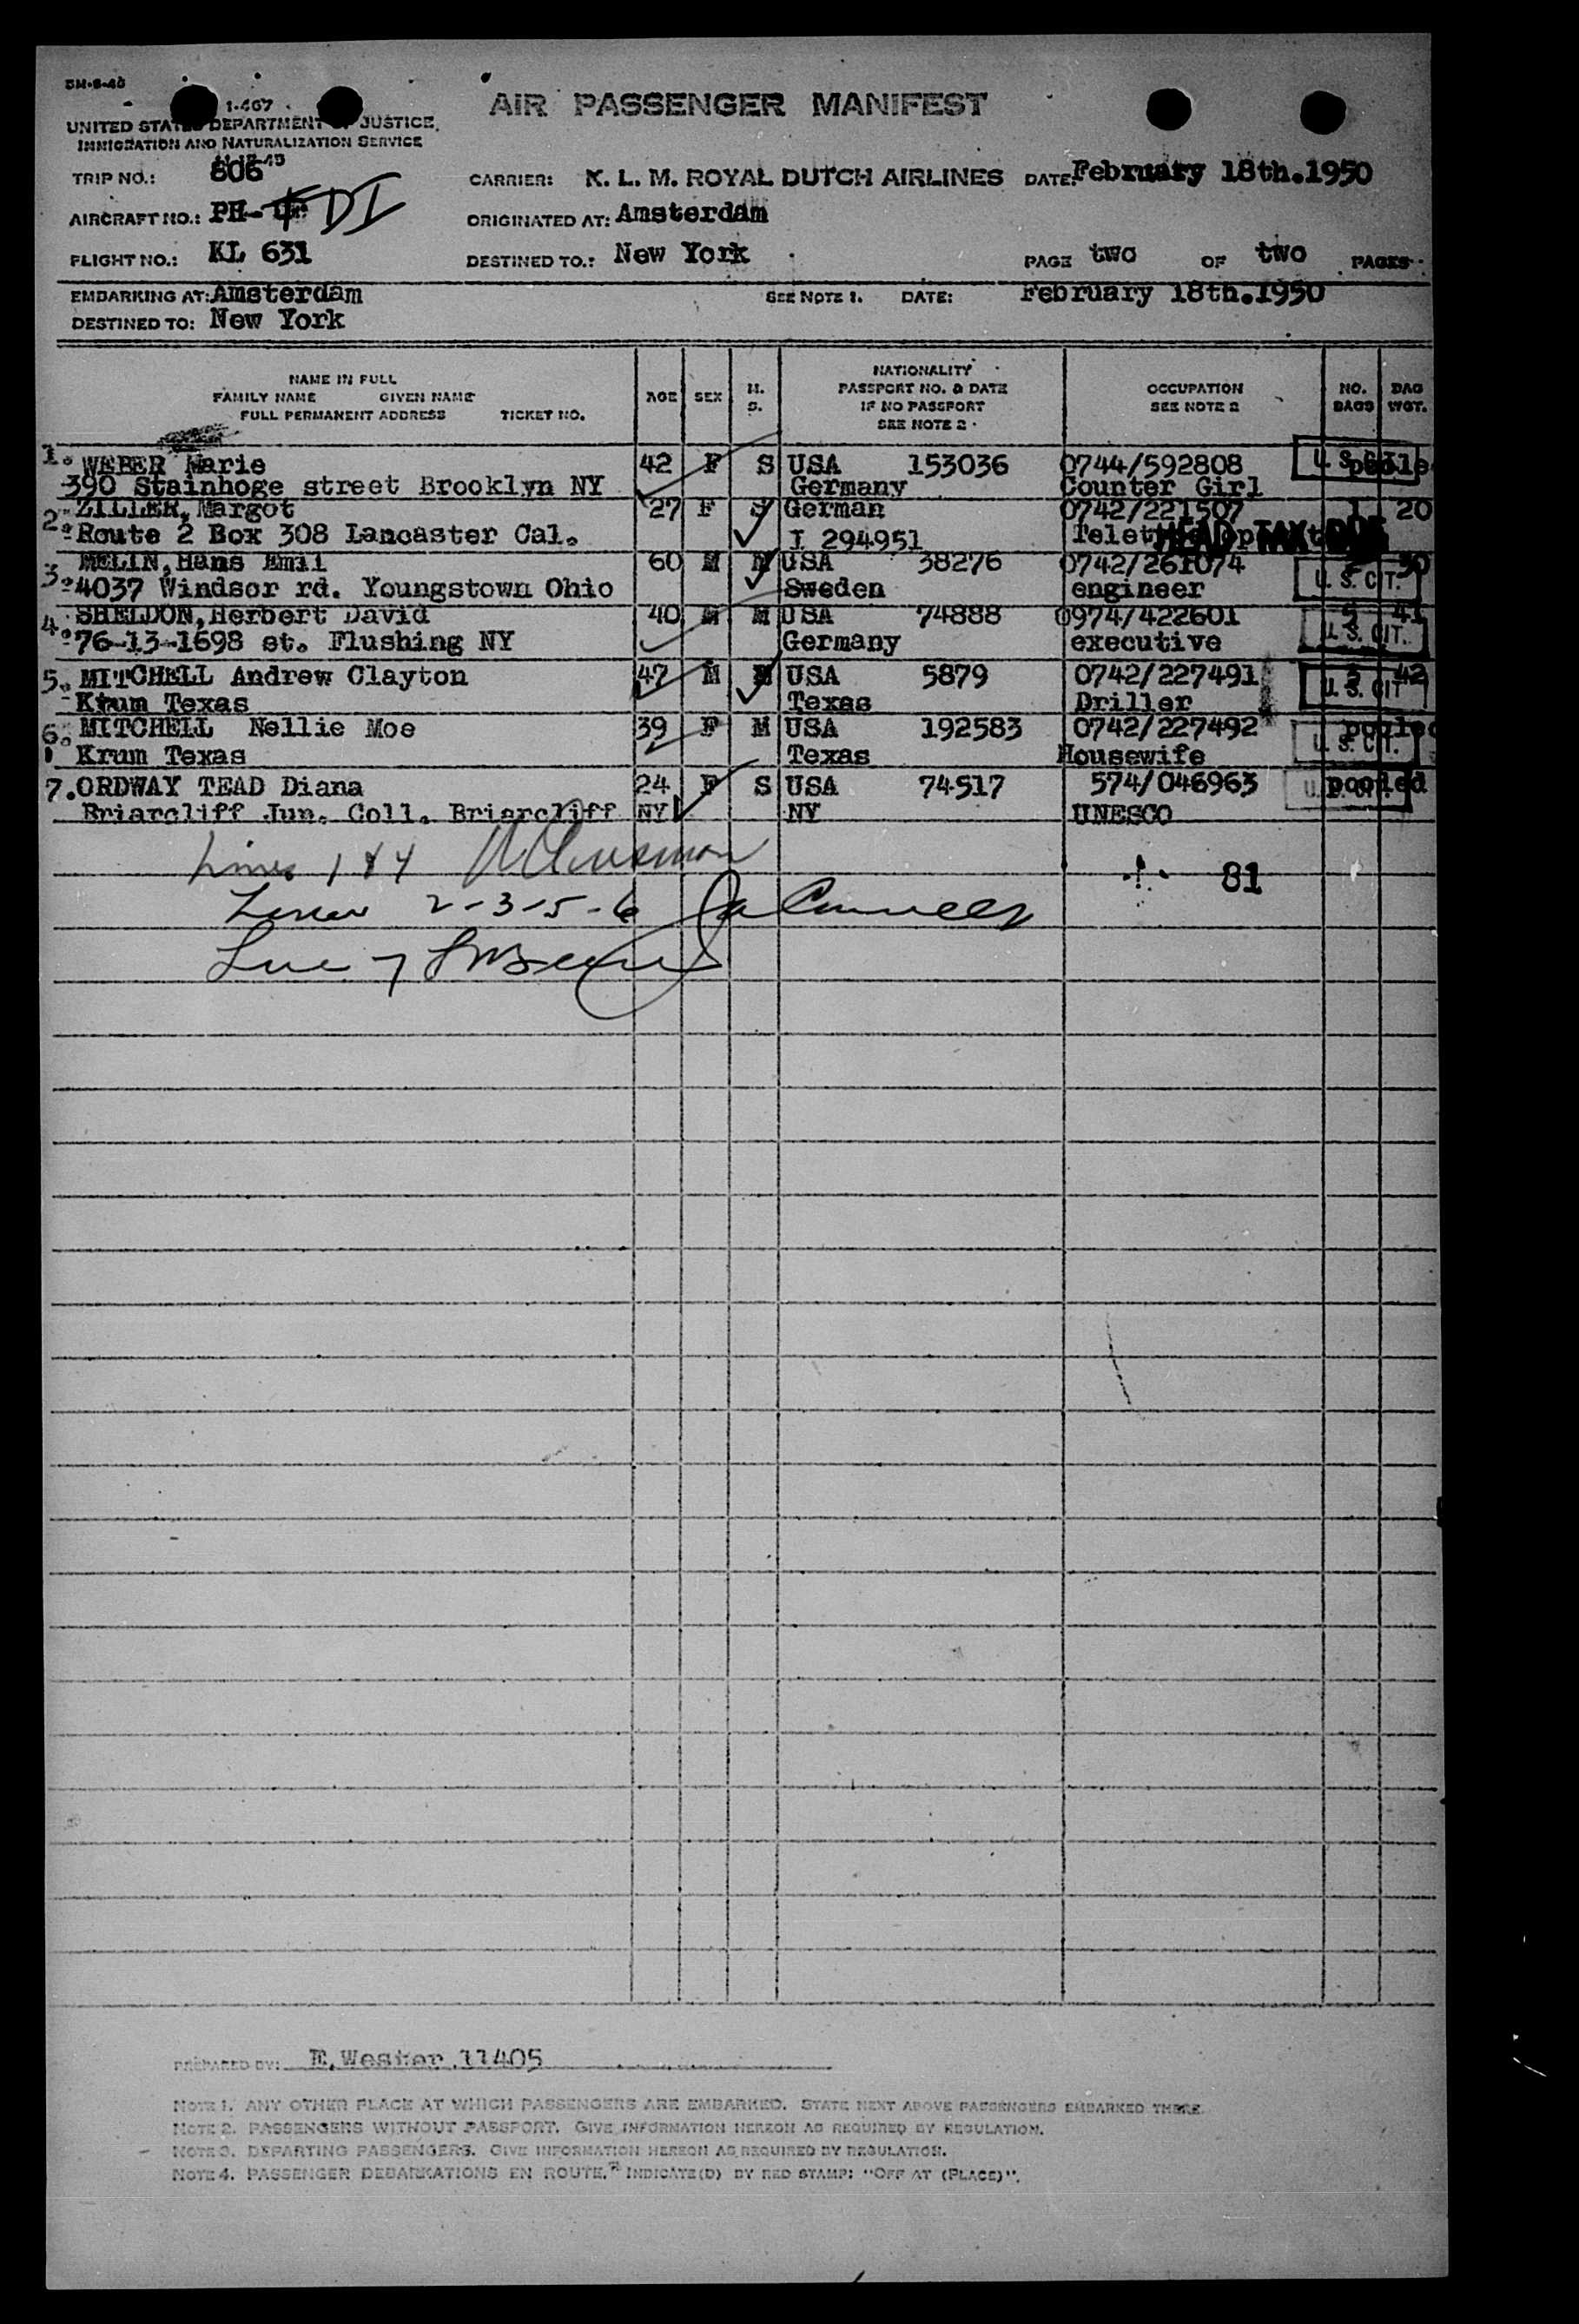 1-467
UNITED STATES DEPARTMENT OF JUSTICE,
IMMIGRATION AND NATURALIZATION SERVICE
AIR PASSENGER MANIFEST
TRIP NO.: 806 CARRIER: K. L. M. ROYAL DUTCH AIRLINES DATE: February 18th.1950
AIRCRAFT NO.: PH- DI ORIGINATED AT: Amsterdam
FLIGHT NO.: KL 631 DESTINED TO.: New York PAGE two OF two PAGES
EMBARKING AT: Amsterdam SEE NOTE 1. DATE: February 18th.1950
DESTINED TO: New York
NAME IN FULL
FAMILY NAME GIVEN NAME
FULL PERMANENT ADDRESS TICKET NO.
AGE SEX M. S.
NATIONALITY
PASSPORT NO. & DATE
IF NO PASSPORT
SEE NOTE 2
OCCUPATION
SEE NOTE 2
NO. BAGS
BAG WGT.
1. WEBER Marie 42 F S USA 153036 0744/592808 U. S. CIT.
390 Stainhoge street Brooklyn NY Germany Counter Girl
2. ZILLER, Margot 27 F S German 0742/221507 1 20
Route 2 Box 308 Lancaster Cal. I 294951 HEAD TAX DUE
3. MELIN, Hans Emil 60 M M USA 38276 0742/261074 30
4037 Windsor rd. Youngstown Ohio Sweden engineer U. S. CIT.
4. SHELDON, Herbert David 40 M M USA 74888 0974/422601 41
76-13-1698 st. Flushing NY Germany executive U. S. CIT.
5. MITCHELL Andrew Clayton 47 M M USA 5879 0742/227491 42
Krum Texas Texas Driller U. S. CIT
6. MITCHELL Nellie Moe 39 F M USA 192583 0742/227492 pooled
Krum Texas Texas Housewife U. S. CIT.
7. ORDWAY TEAD Diana 24 F S USA 74517 574/046963 pooled
Briarcliff Jun. Coll. Briarcliff NY NY UNESCO
Lines 1 & 4
81
Lines 2-3-5-6
Line 7
PREPARED BY: E. Wester 11405
NOTE 1. ANY OTHER PLACE AT WHICH PASSENGERS ARE EMBARKED. STATE NEXT ABOVE PASSENGERS EMBARKED THERE.
NOTE 2. PASSENGERS WITHOUT PASSPORT. GIVE INFORMATION HEREON AS REQUIRED BY REGULATION.
NOTE 3. DEPARTING PASSENGERS. GIVE INFORMATION HEREON AS REQUIRED BY REGULATION.
NOTE 4. PASSENGER DEBARKATIONS EN ROUTE. INDICATE(D) BY RED STAMP: "OFF AT (PLACE)".